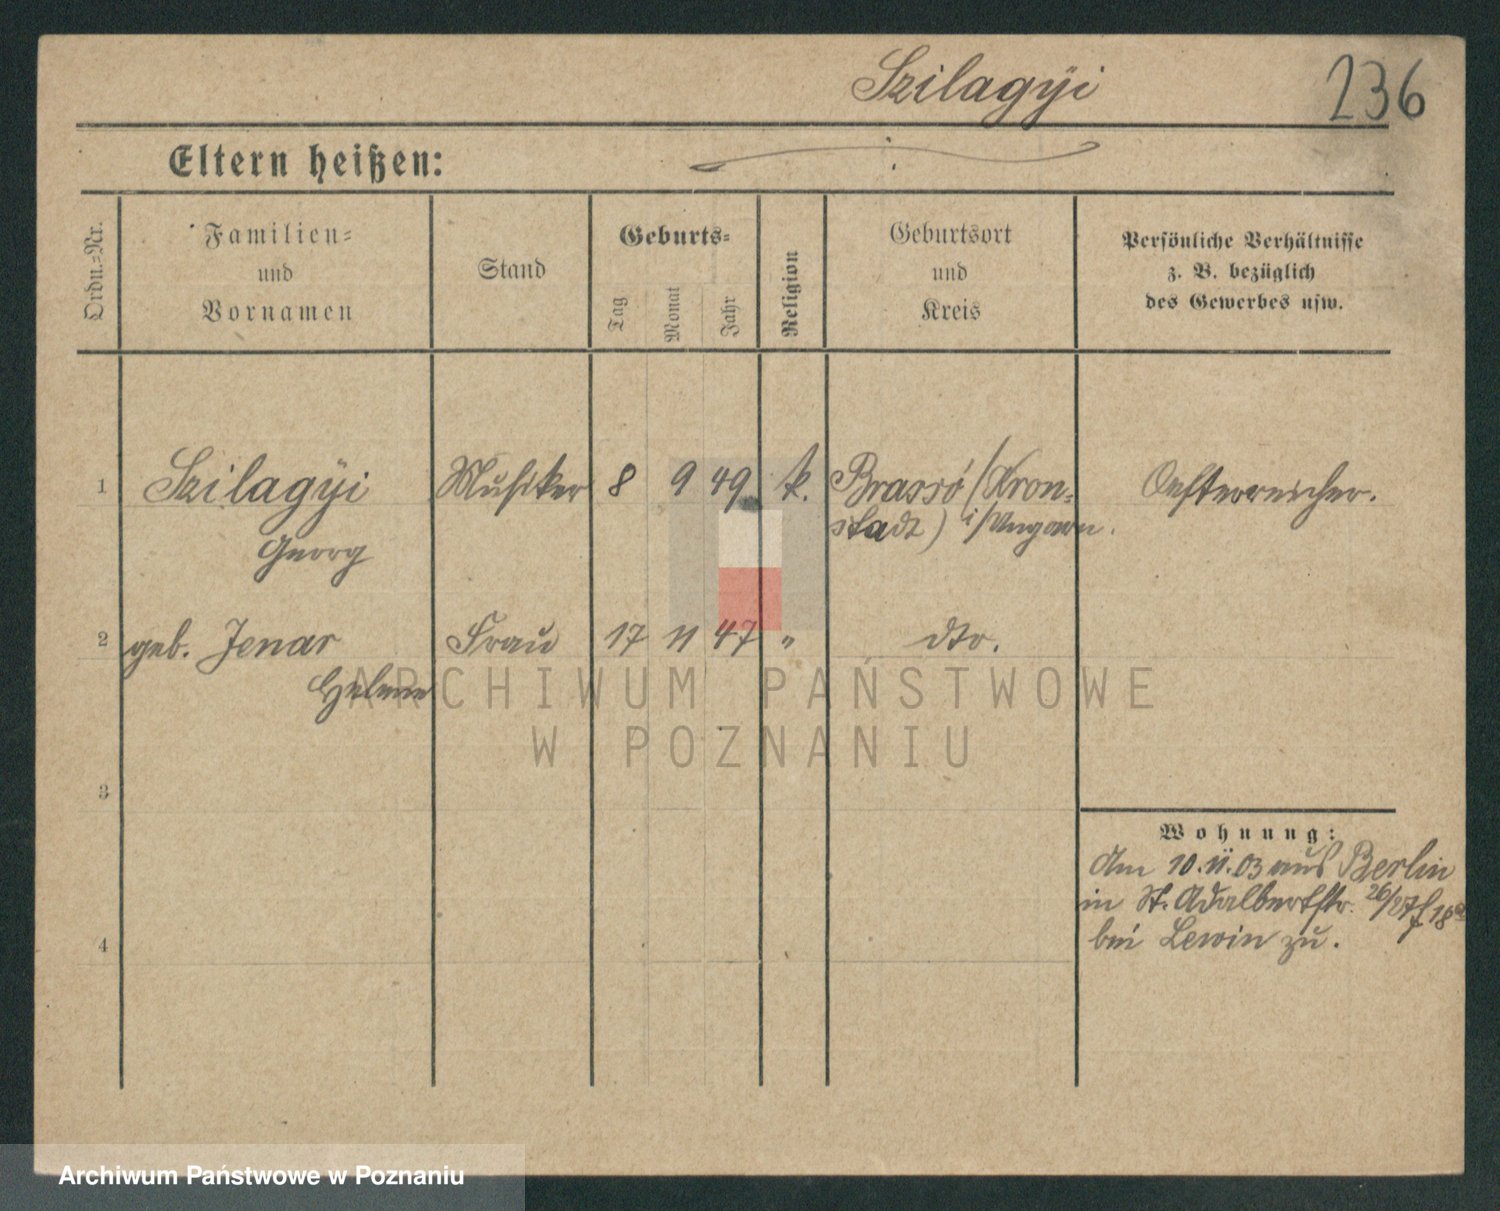 Szilagyi
236
Eltern heißen:
Ordn.-Nr.
Familien- und Vornamen
Stand
Geburts-
Tag
Monat
Jahr
Religion
Geburtsort und Kreis
Persönliche Verhältnisse
z. B. bezüglich
des Gewerbes usw.
1 Szilagyi Musiker 8 9 49 k. Brassó (Kron- Oesterreicher.
Georg stadt) i/Ungarn.
2 geb. Jenar Frau 17 11 47 " dto.
Helene
3
4
Wohnung:
Am 10.11.03 aus Berlin
in St. Adalbertstr. 26/27
bei Lewin zu.
ARCHIWUM PAŃSTWOWE
W POZNANIU
Archiwum Państwowe w Poznaniu